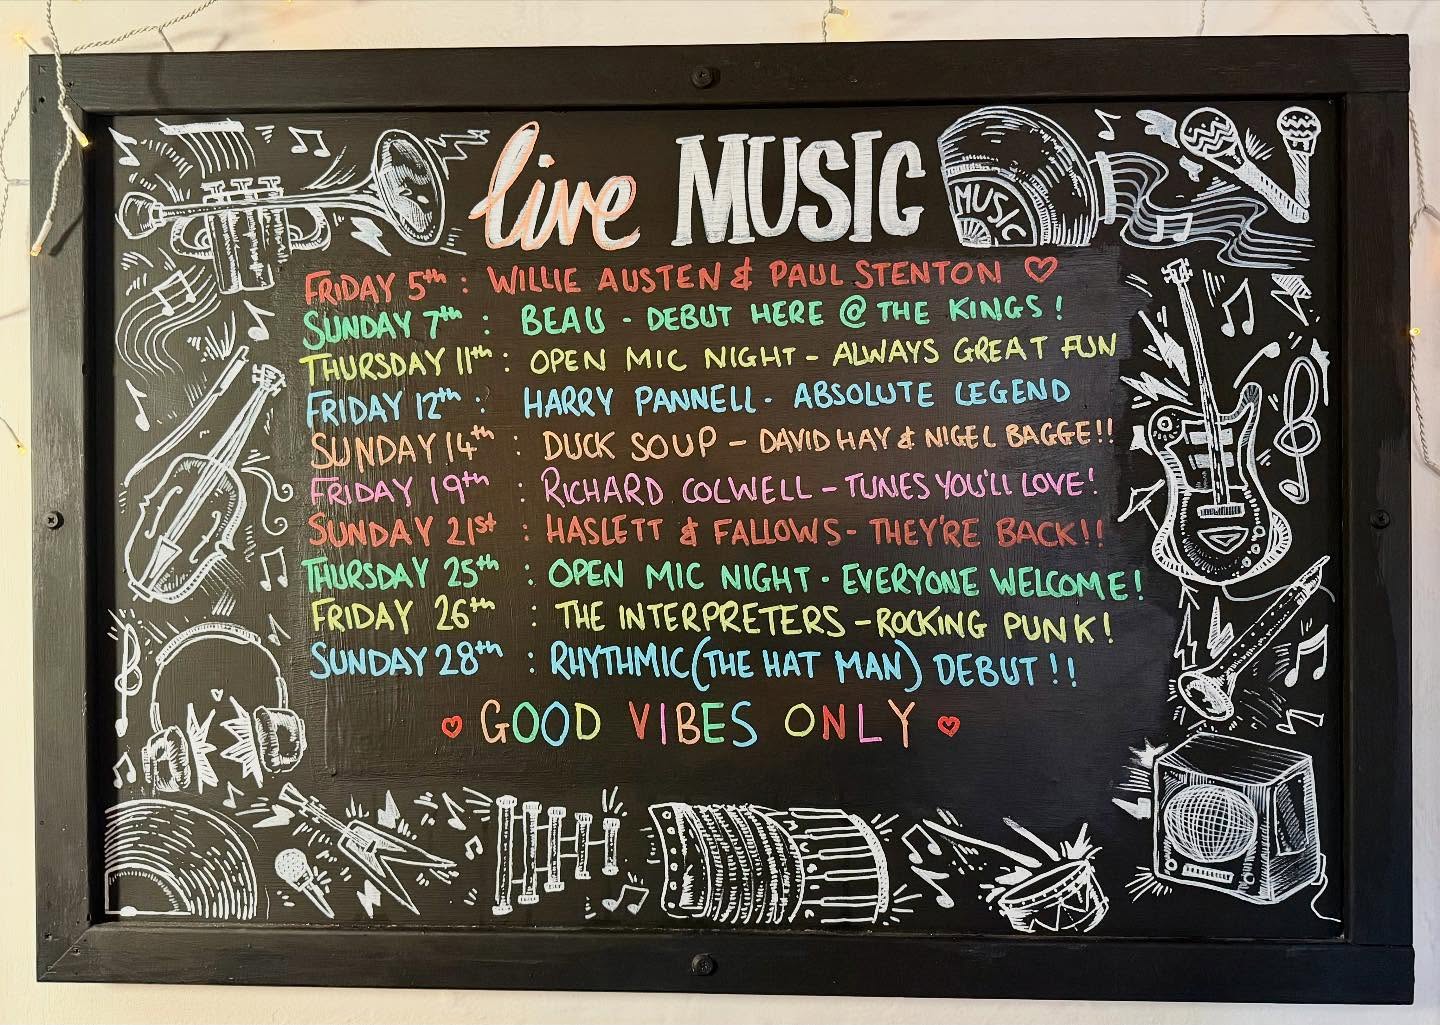 live MUSIC
MUSIC
FRIDAY 5th : WILLIE AUSTEN & PAUL STENTON ♡
SUNDAY 7th : BEAU - DEBUT HERE @ THE KINGS !
THURSDAY 11th : OPEN MIC NIGHT - ALWAYS GREAT FUN
FRIDAY 12th : HARRY PANNELL - ABSOLUTE LEGEND
SUNDAY 14th : DUCK SOUP - DAVID HAY & NIGEL BAGGE!!
FRIDAY 19th : RICHARD COLWELL - TUNES YOU'LL LOVE!
SUNDAY 21st : HASLETT & FALLOWS - THEY'RE BACK!!
THURSDAY 25th : OPEN MIC NIGHT - EVERYONE WELCOME!
FRIDAY 26th : THE INTERPRETERS - ROCKING PUNK!
SUNDAY 28th : RHYTHMIC (THE HAT MAN) DEBUT!!
♡ GOOD VIBES ONLY ♡